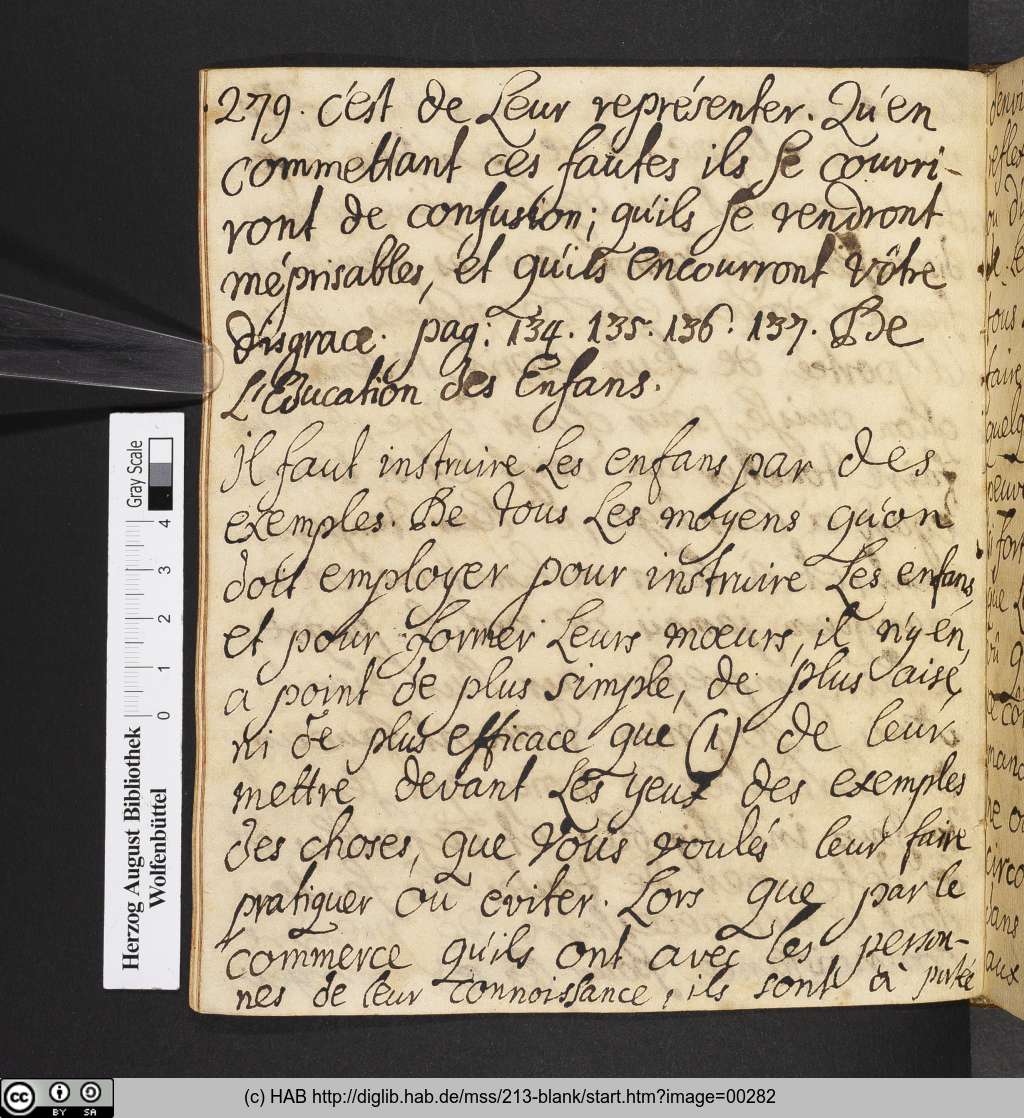 279. c'est de Leur représenter. Qu'en
commettant ces fautes ils se couvri-
ront de confusion; qu'ils se rendront
méprisables, et qu'ils encourront vôtre
disgrace. pag: 134. 135. 136. 137. De
L'Education des Enfans.
Il faut instruire Les enfans par des
exemples. De tous Les moyens qu'on
doit employer pour instruire Les enfans,
et pour former Leurs mœurs, il n'y en
a point de plus simple, de plus aisé,
ni de plus efficace que (1) de leur
mettre devant Les yeux des exemples
des choses, que vous voulés leur faire
pratiquer ou éviter. Lors que par le
commerce qu'ils ont avec les person-
nes de leur connoissance, ils sont à portée
Herzog August Bibliothek
Wolfenbüttel
Gray Scale
0 1 2 3 4
cc BY SA
(c) HAB http://diglib.hab.de/mss/213-blank/start.htm?image=00282